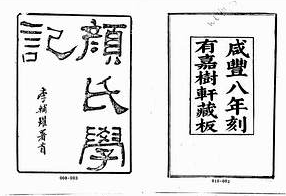 顏氏學
記
李輔燿署首
咸豐八年刻
有嘉樹軒藏板